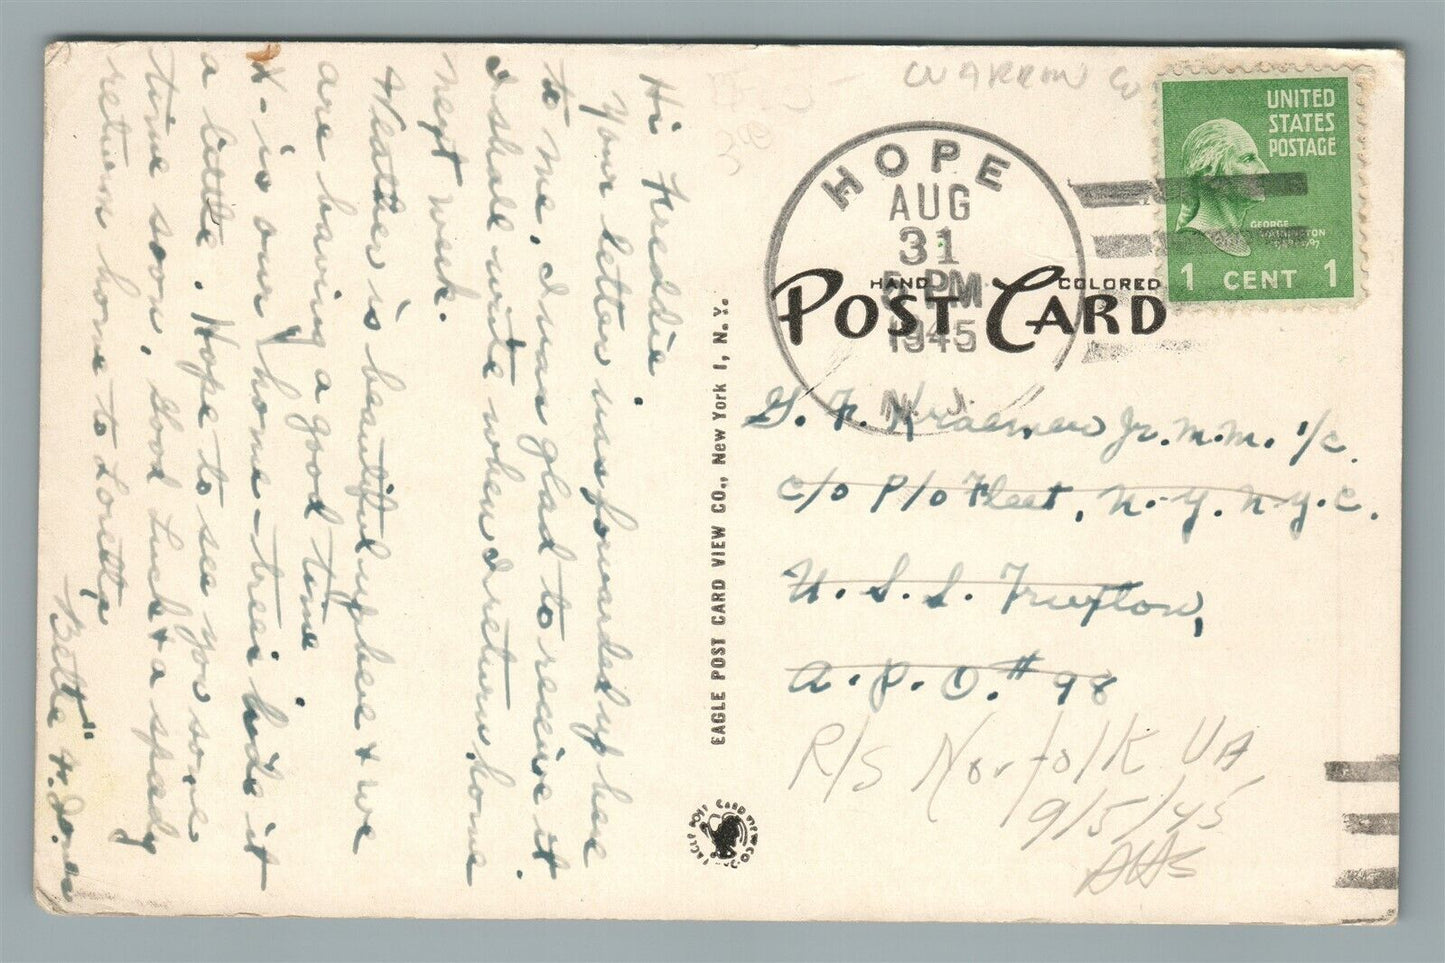 Hi Freddie.
Your letter was forwarded up here
to me. I was glad to receive it
I shall write when I return home
next week.
Weather is beautiful up here & we
are having a good time
X - is our home - trees hide it
a little. Hope to see you some
time soon. Good Luck & a speedy
return home to Loretta
Bette "
WARREN
HOPE
AUG
31
5 PM
1945
N. J.
UNITED
STATES
POSTAGE
GEORGE
WASHINGTON
1 CENT 1
HAND COLORED
POST CARD
G. F. Kraemer Jr. M.M. 1/c.
c/o P/o Fleet, N.Y. N.Y.C.
U.S.S. Truxton,
A.P.O. # 98
R/S Norfolk VA
9/5/45
EAGLE POST CARD VIEW CO., New York 1, N. Y.
EAGLE POST CARD VIEW CO.